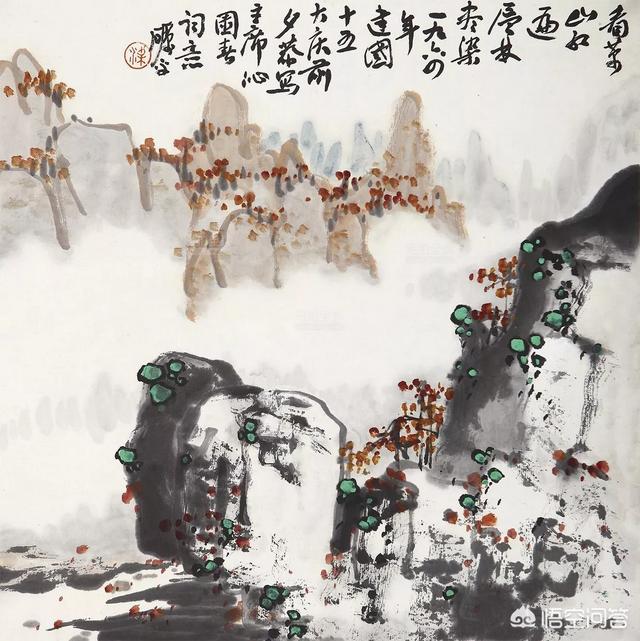 看萬
山红
遍
层林
尽染
一九六四
年
建國
十五
大庆前
夕恭写
主席沁
園春
词意
悟空问答